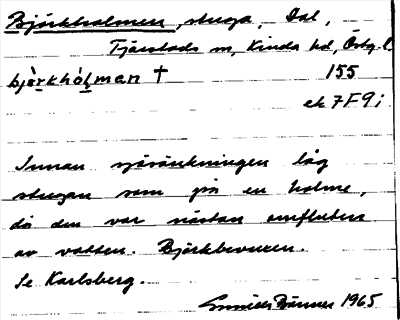 Björkholmen, stuga, Dal,
Tjärstads sn, Kinda hd, Östg. l.
bjö̀rkhòlman † 155
ek 7F9i
Innan sjösänkningen låg
stugan som på en holme,
då den var nästan omfluten
av vatten. Björkbevuxen.
Se Karlsberg.
1965